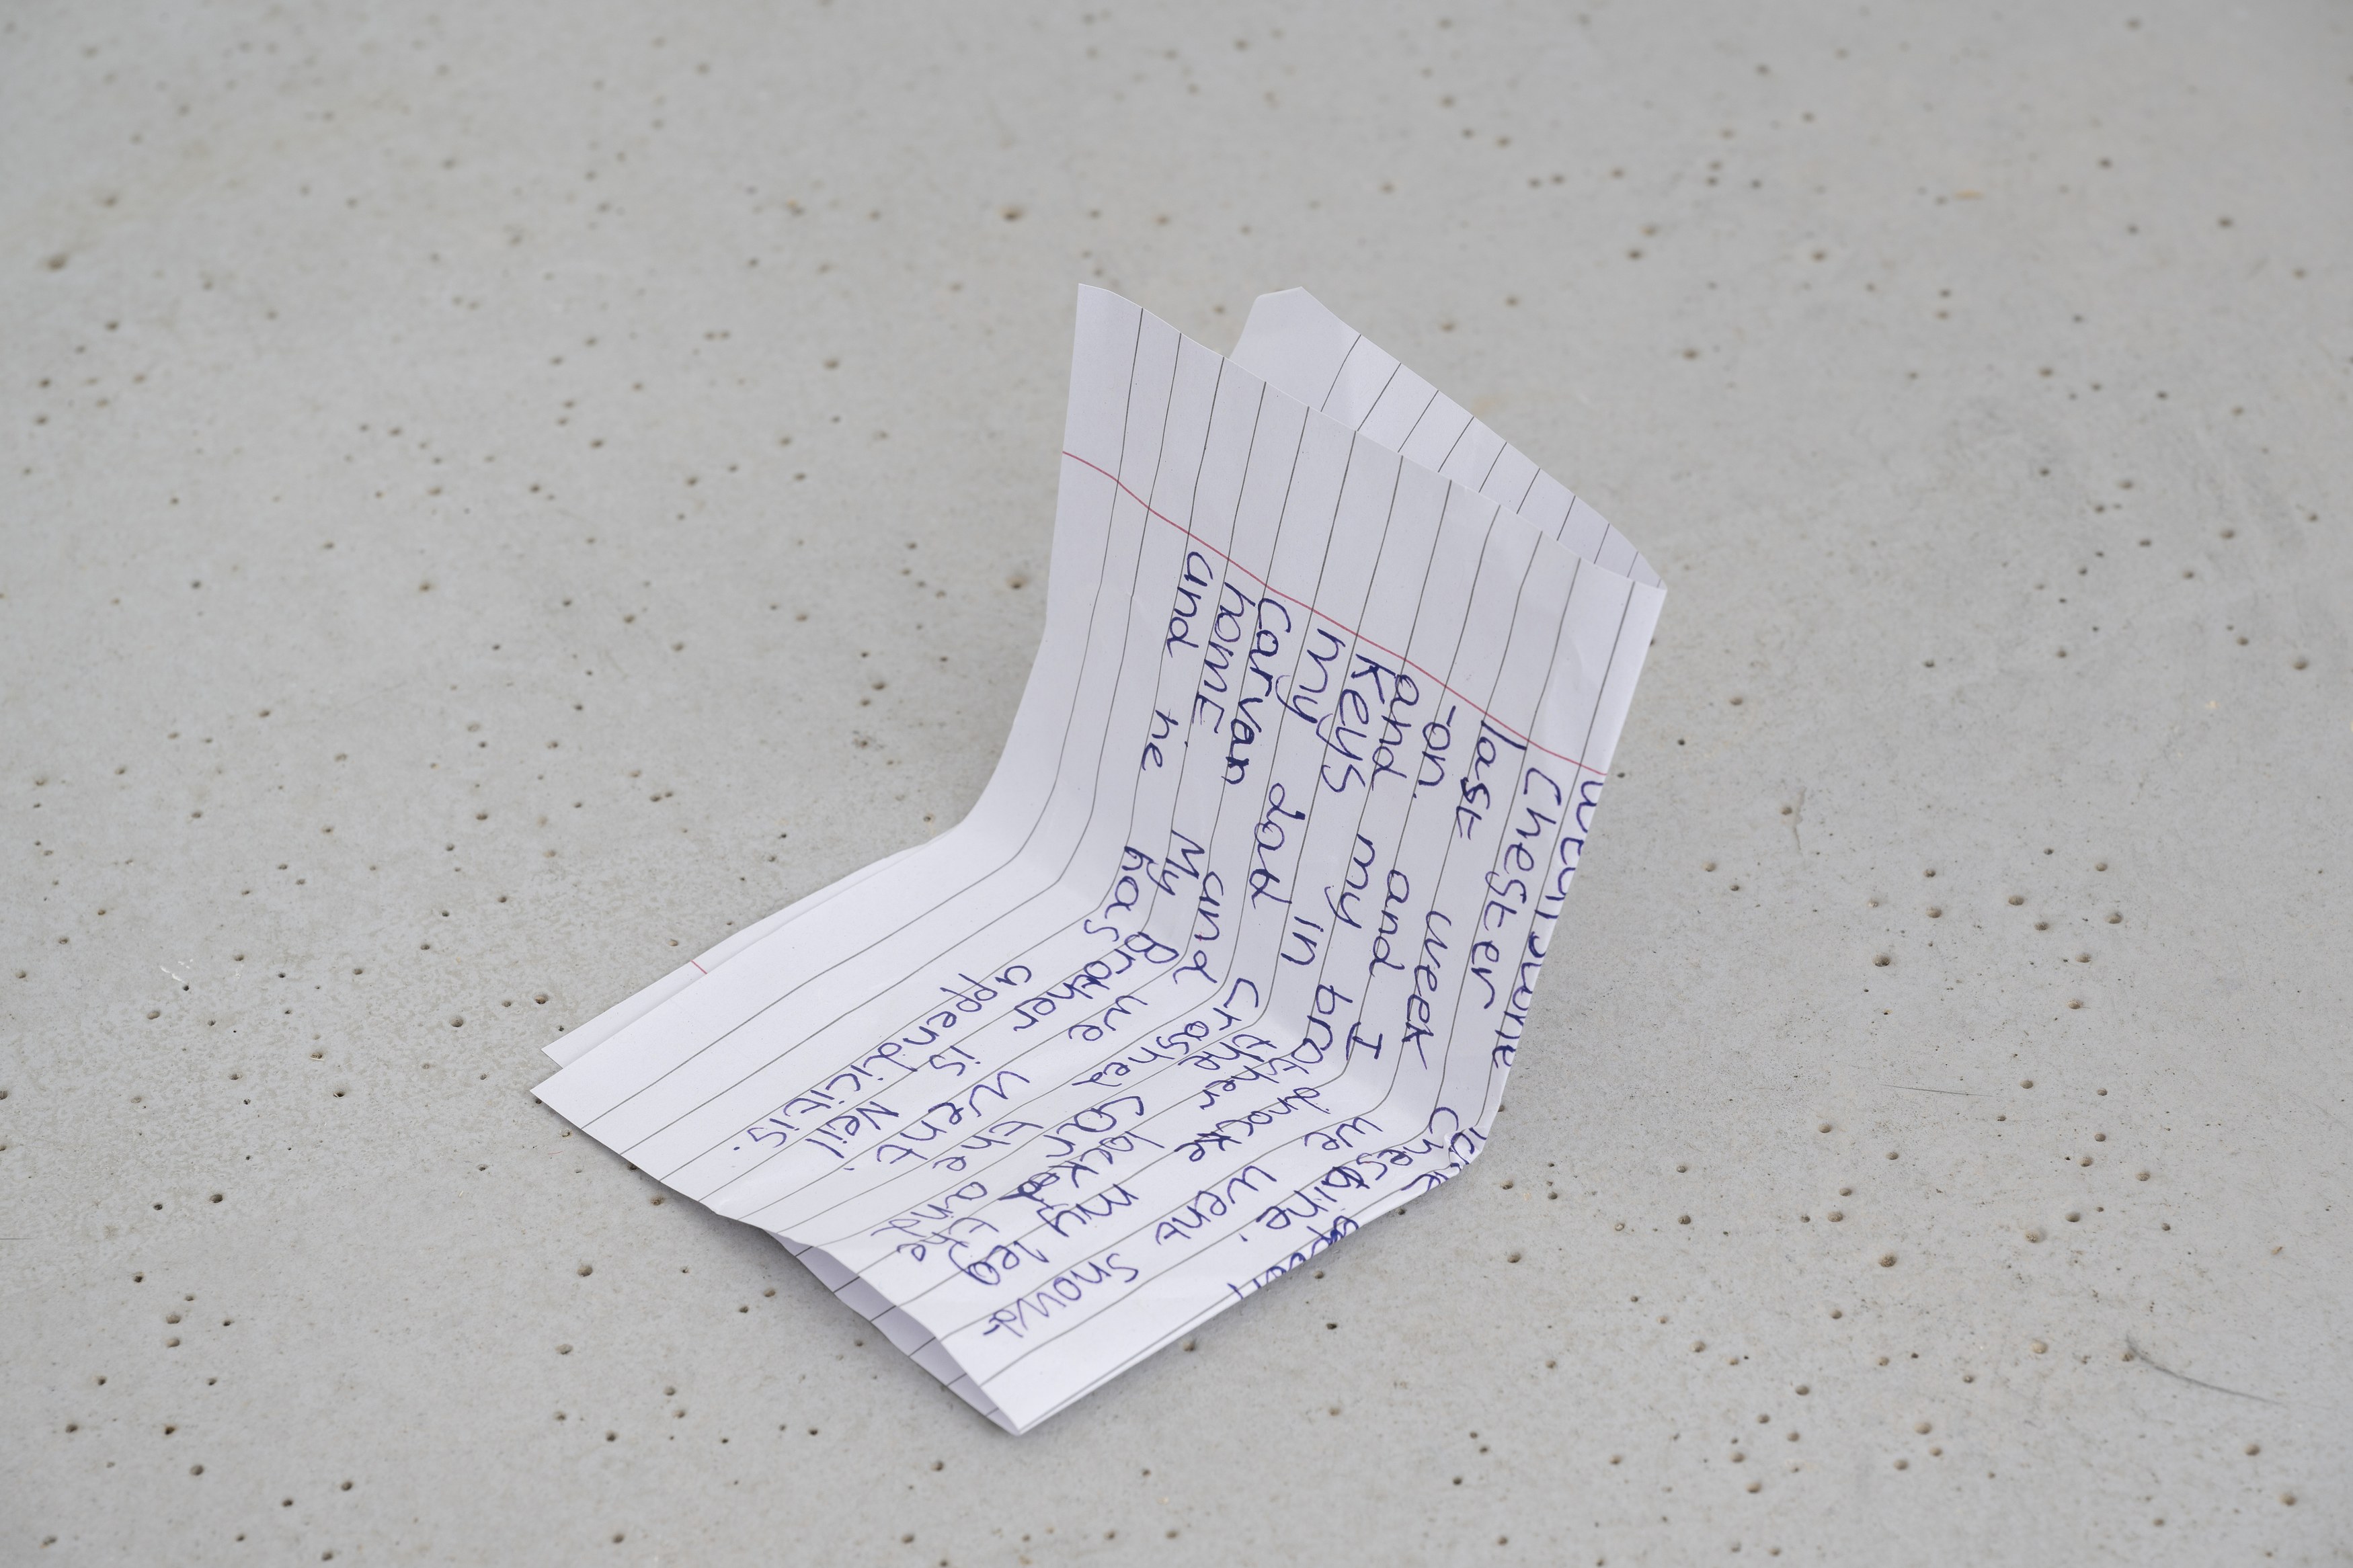 Chester
last week we went snowd-
-on. and I drocke my leg
and my brother locked the
keys in the car and
my dad crashed the
carvan and we went.
home. My Brother is Neil
and he has appendicitis.